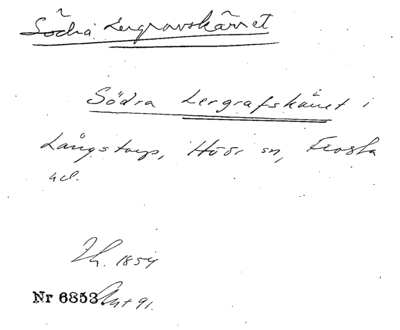 Södra Lergravskärret
Södra Lergrafskärret i
Långstorp, Höör sn, Frosta
hd.
Zh. 1854
Nr 6853 Akt 91.